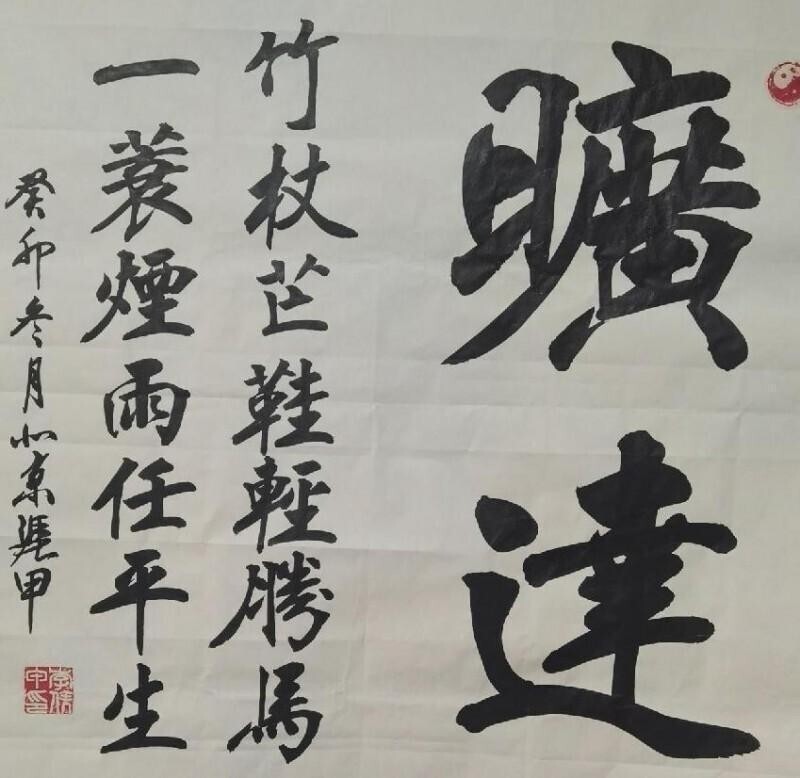 曠達
竹杖芒鞋輕勝馬
一蓑煙雨任平生
癸卯冬月北京甲